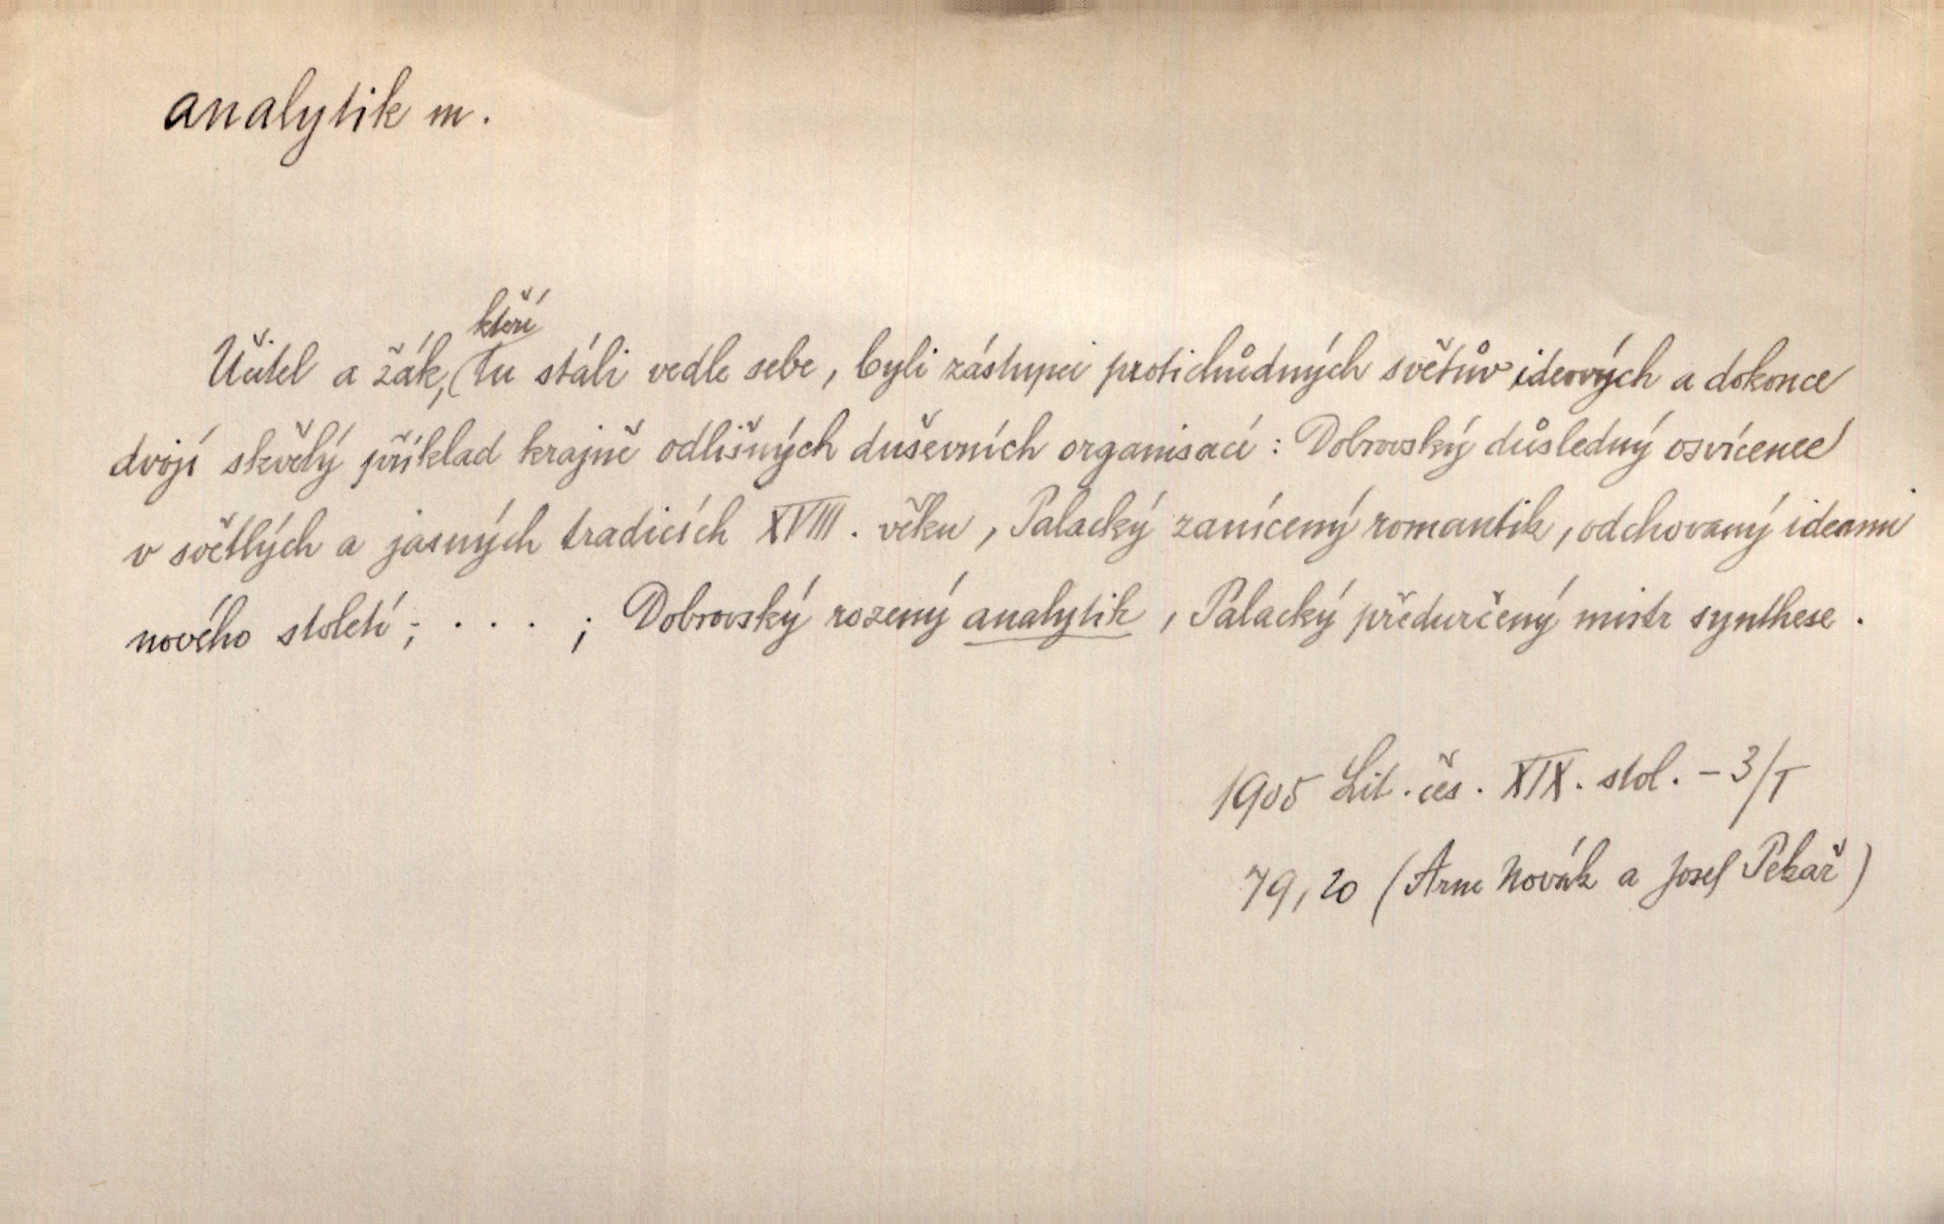 analytik m.
Učitel a žák, kteří tu stáli vedle sebe, byli zástupci protichůdných světův ideových a dokonce
dvojí skvělý příklad krajně odlišných duševních organisací: Dobrovský důsledný osvícenec
v světlých a jasných tradicích XVIII. věku, Palacký zanícený romantik, odchovaný ideami
nového století; . . . ; Dobrovský rozený analytik, Palacký předurčený mistr synthese.
1905 Lit. čes. XIX. stol. - 3/I
79, 20 (Arne Novák a Josef Pekař)